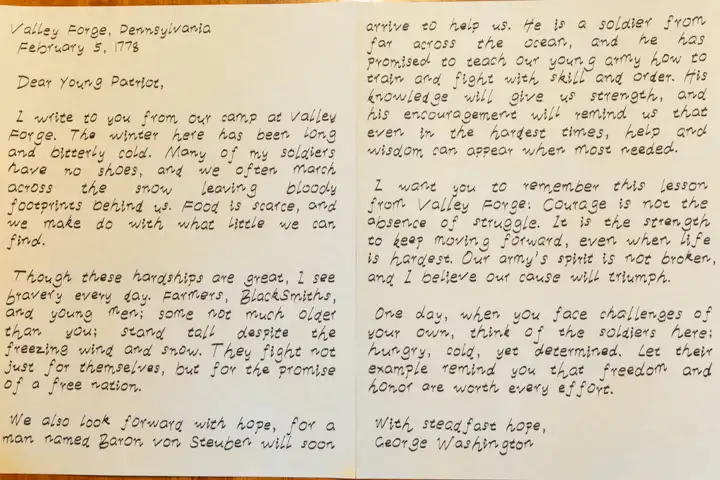 Valley Forge, Pennsylvania
February 5, 1778
Dear Young Patriot,
I write to you from our camp at Valley
Forge. The winter here has been long
and bitterly cold. Many of my soldiers
have no shoes, and we often march
across the snow leaving bloody
footprints behind us. Food is scarce, and
we make do with what little we can
find.
Though these hardships are great, I see
bravery every day. Farmers, BlackSmiths,
and young men; some not much older
than you; stand tall despite the
freezing wind and snow. They fight not
just for themselves, but for the promise
of a free nation.
We also look forward with hope, for a
man named Baron von Steuben will soon
arrive to help us. He is a soldier from
far across the ocean, and he has
promised to teach our young army how to
train and fight with skill and order. His
knowledge will give us strength, and
his encouragement will remind us that
even in the hardest times, help and
wisdom can appear when most needed.
I want you to remember this lesson
from Valley Forge: Courage is not the
absence of struggle. It is the strength
to keep moving forward, even when life
is hardest. Our army's spirit is not broken,
and I believe our cause will triumph.
One day, when you face challenges of
your own, think of the soldiers here:
hungry, cold, yet determined. Let their
example remind you that freedom and
honor are worth every effort.
With steadfast hope,
George Washington